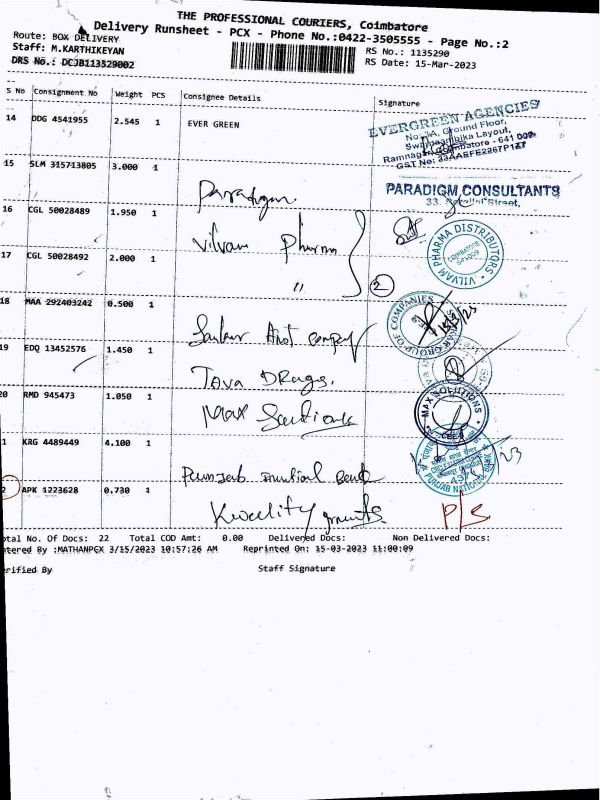 THE PROFESSIONAL COURIERS, Coimbatore
Delivery Runsheet - PCX - Phone No.:0422-3505555 - Page No.:2
Route: BOX DELIVERY
RS No.: 1135290
Staff: M.KARTHIKEYAN
RS Date: 15-Mar-2023
DRS No.: DCJB113529002
S No Consignment No Weight PCS Consignee Details Signature
14 DDG 4541955 2.545 1 EVER GREEN
EVERGREEN AGENCIES
Ground Floor,
Layout,
641 009
GST No: 33AAEFE2267P1Z7
15 SLM 315713805 3.000 1 Paradigm
PARADIGM CONSULTANTS
33, Street,
16 CGL 50028489 1.950 1 Vilvam Pharma
VILVAM PHARMA DISTRIBUTORS
COIMBATORE
17 CGL 50028492 2.000 1 "
2
18 MAA 292403242 0.500 1
GROUP OF COMPANIES
15/3/23
19 EDQ 13452576 1.450 1 Tava Drugs.
20 RMD 945473 1.050 1 Max Solutions
MAX SOLUTIONS
CBE
1 KRG 4489449 4.100 1 Punjab
PUNJAB NATIONAL BANK
4370
2 APK 1223628 0.730 1 Kwality
P/S
otal No. Of Docs: 22 Total COD Amt: 0.00 Delivered Docs: Non Delivered Docs:
ntered By :MATHANPCX 3/15/2023 10:57:26 AM Reprinted On: 15-03-2023 11:00:09
erified By Staff Signature